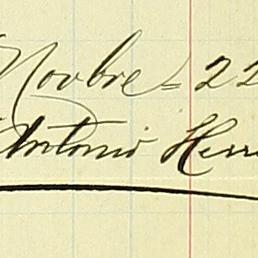 Novbre = 22
Antonio Herr